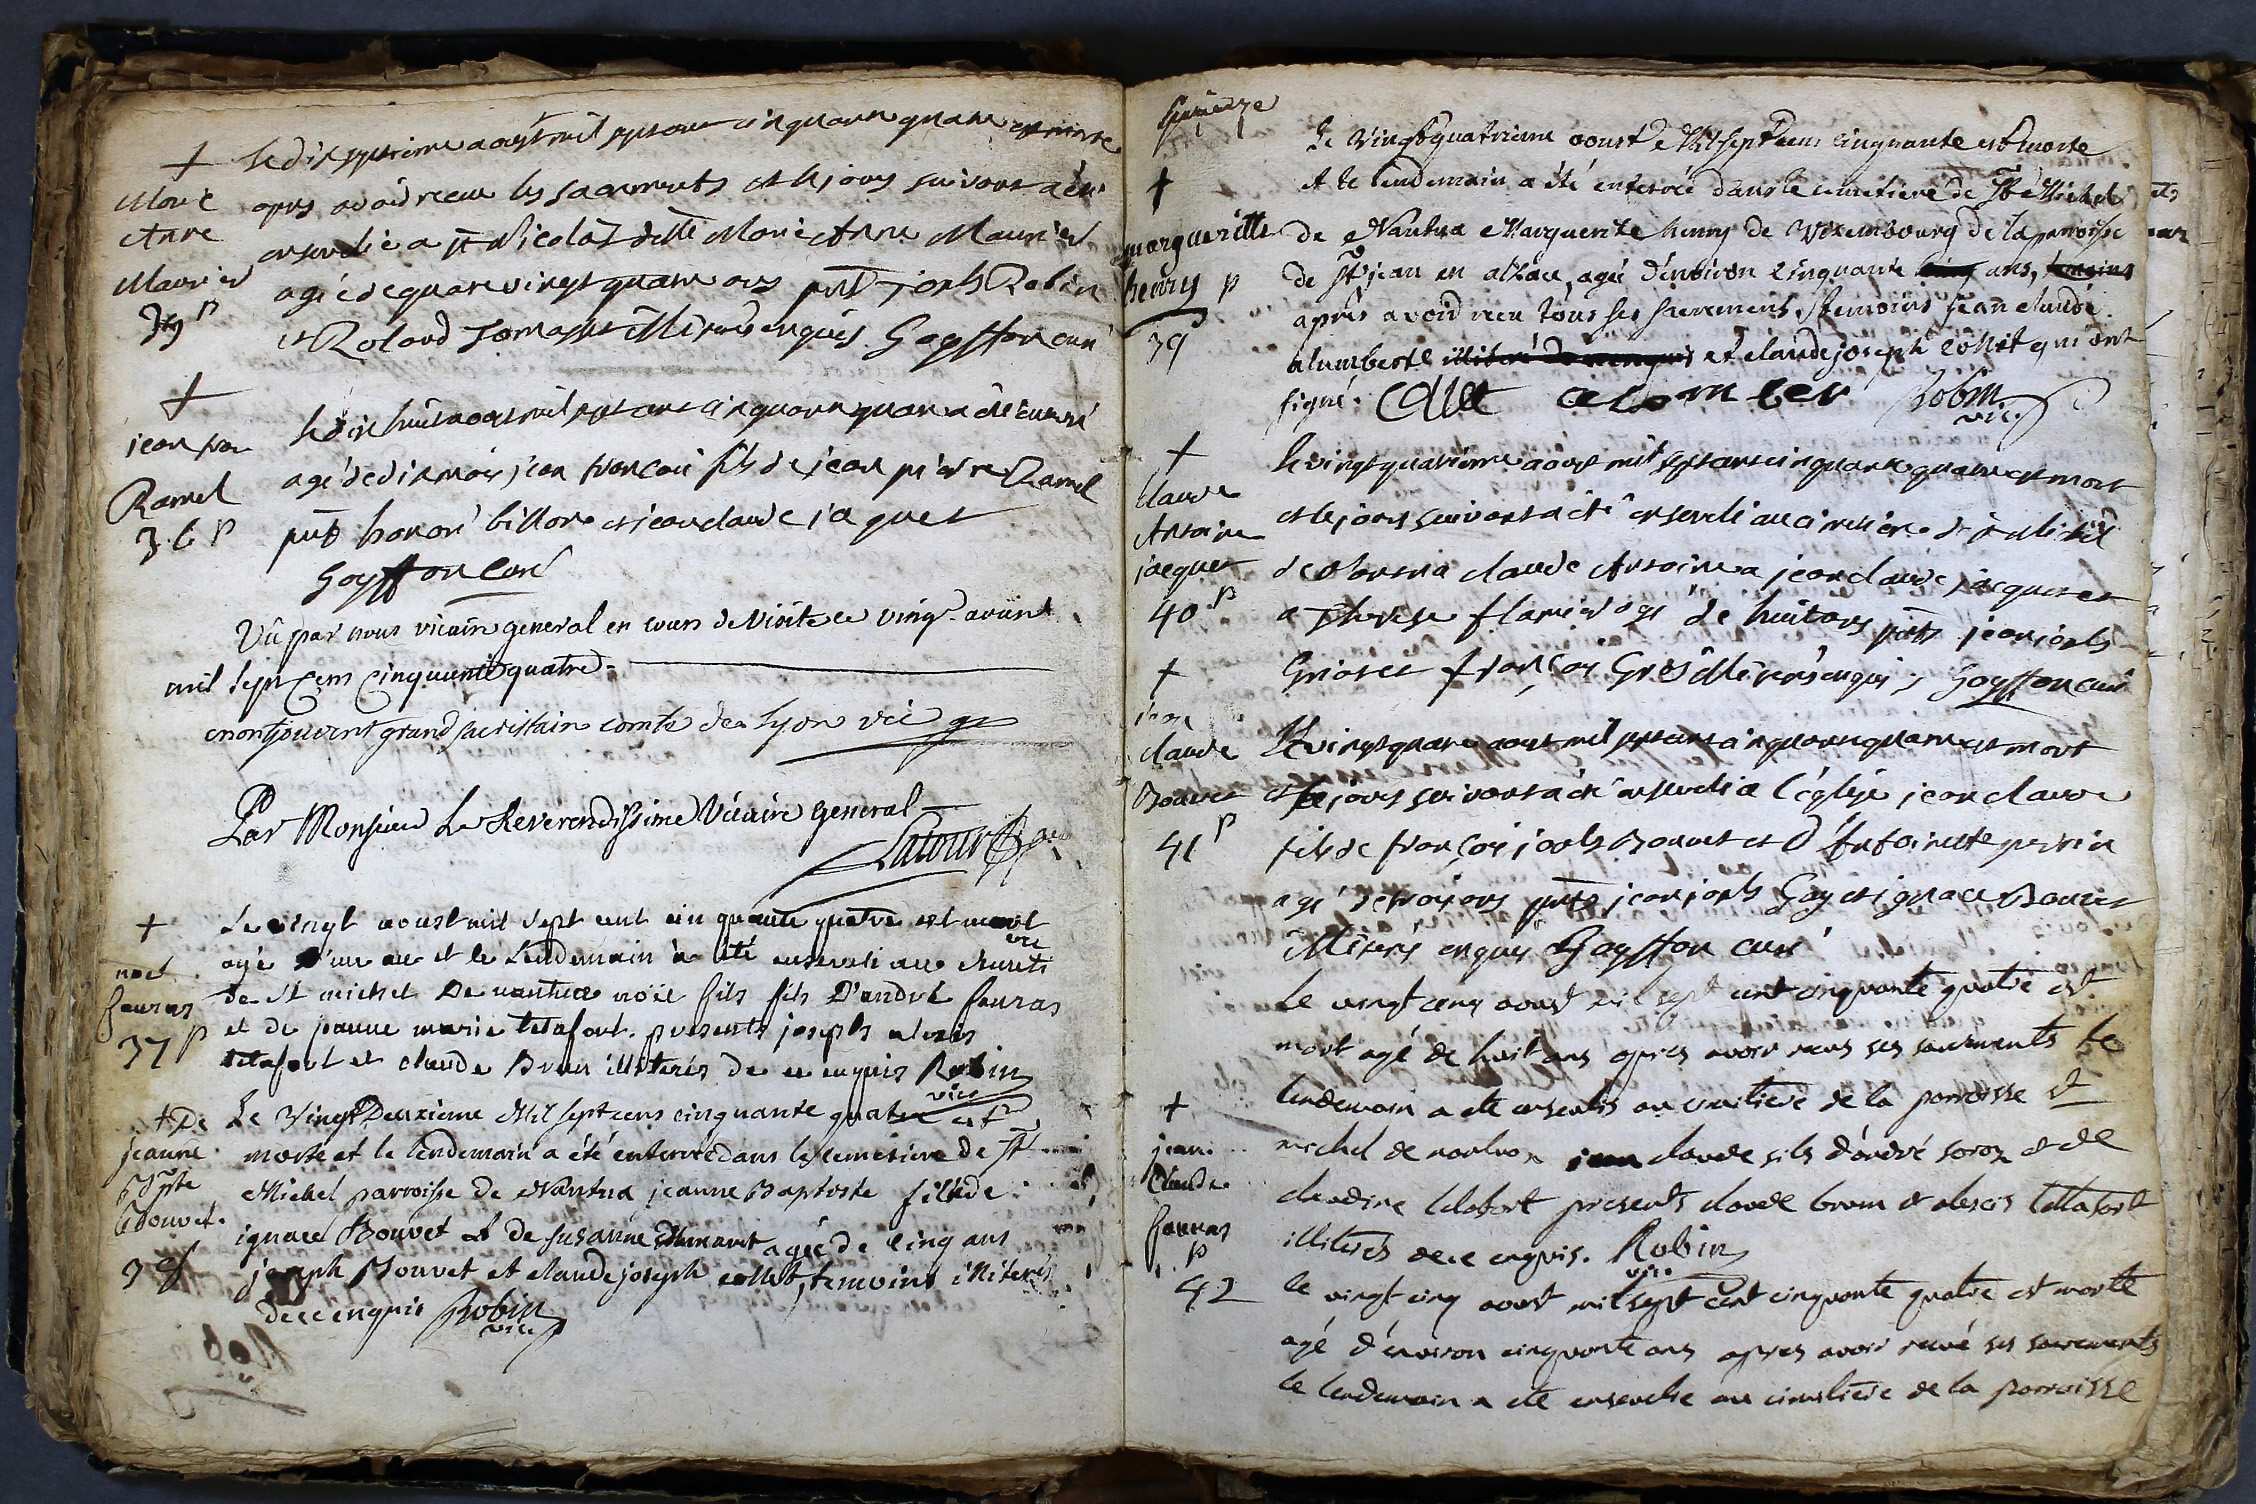 +
Marie
Anne
Maurier
p
le dix septieme aoust mil sept cent cinquante quatre est morte
apres avoir receu les sacrements et le jour suivant a été
ensevelie a st Nicolas ditte Marie Anne Maurier
agée de quatre vingt quatre ans pnts joseph Robin
et Roland illiterés enquis. Goyffon curé
+
jean fran
Ramel
36 p
le dix huit aoust mil sept cent cinquante quatre a été enterré
agé de dix mois jean françois fils de jean pierre Ramel
pnts honoré billon et jean claude jaquet
Goyffon curé
Vû par nous vicaire general en cours de visite ce vingt aoust
mil sept cens cinquante quatre
montjouvent grand sacristain comte de Lyon vic g
Par Monsieur Le Reverendissime Vicaire general
Latour
+
noel
fauras
37 p
Le vingt aoust mil sept cent cin quante quatre est mort
agé d'un an et le Lendemain a été enseveli au cimeti
de st michel De nantua noïe fils fils D'andré fauras
et de jeanne marie tetafort. presents joseph alexis
tetafort et claude Brun illiterés de ce enquis Robin
vice
+ De
jeanne
Bapte
Bouvet.
Le Vingt Deuxieme Mil sept cens cinquante quatre est
morte et le lendemain a été enterrée dans le cemetiere de St
Michel parroisse de Nantua jeanne Baptiste fille de
ignace Bouvet et de susanne agée de cinq ans
joseph Bouvet et claude joseph collet, temoins illiterés
de ce enquis Robin
vice
+
margueritte
henry p
39
Le Vingt quatrieme aoust Mil sept cens cinquante est morte
et le lendemain a été enterrée dans le cemetiere de St Michel
de Nantua Marguerite henry de Wixembourg de la parroisse
de St jean en alsace, agée d'environ cinquante ans,
après avoir receu tous ses sacremens, temoins jean claude
alumbert et claude joseph collet qui ont
signé. Collet alomber Robin
vic.
+
Claude
Antoine
jacquet
40 p
le vingt quatrieme aoust mil sept cent cinquante quatre est mort
et le jour suivant a été enseveli au cimetiere de st Michel
de Nantua claude Antoine a jean claude jacquet et
a Therese flamier agé de huit ans pnts jean joseph
françois Gros illiterés enquis, Goyffon curé
+
jean
claude
Bouvet
41 p
Le vingt quatre aoust mil sept cent cinquante quatre est mort
et le jour suivant a été enseveli a l'église jean claude
fils de françois joseph Bouvet et d'Antoinette perrin
agé de trois ans pnts jean joseph Goy et ignace Bouvet
illiterés enquis Goyffon curé
+
jean
Claude
fauras
p
42
Le vingt cinq aoust mil sept cent cinquante quatre est
mort agé de huit ans apres avoir receu ses sacrements le
lendemain a ete ensevelis au cimitiere de la parroisse st
michel de nantua jean claude fils d'andré foraz et de
claudine tetafort presents claude brun et alexis tettafort
illiterés de ce enquis. Robin
vice
le vingt cinq aoust mil sept cent cinquante quatre est morte
agé d'environ cinquante ans apres avoir receue ses sacrements
le lendemain a ete ensevelie au cimitiere de la parroisse